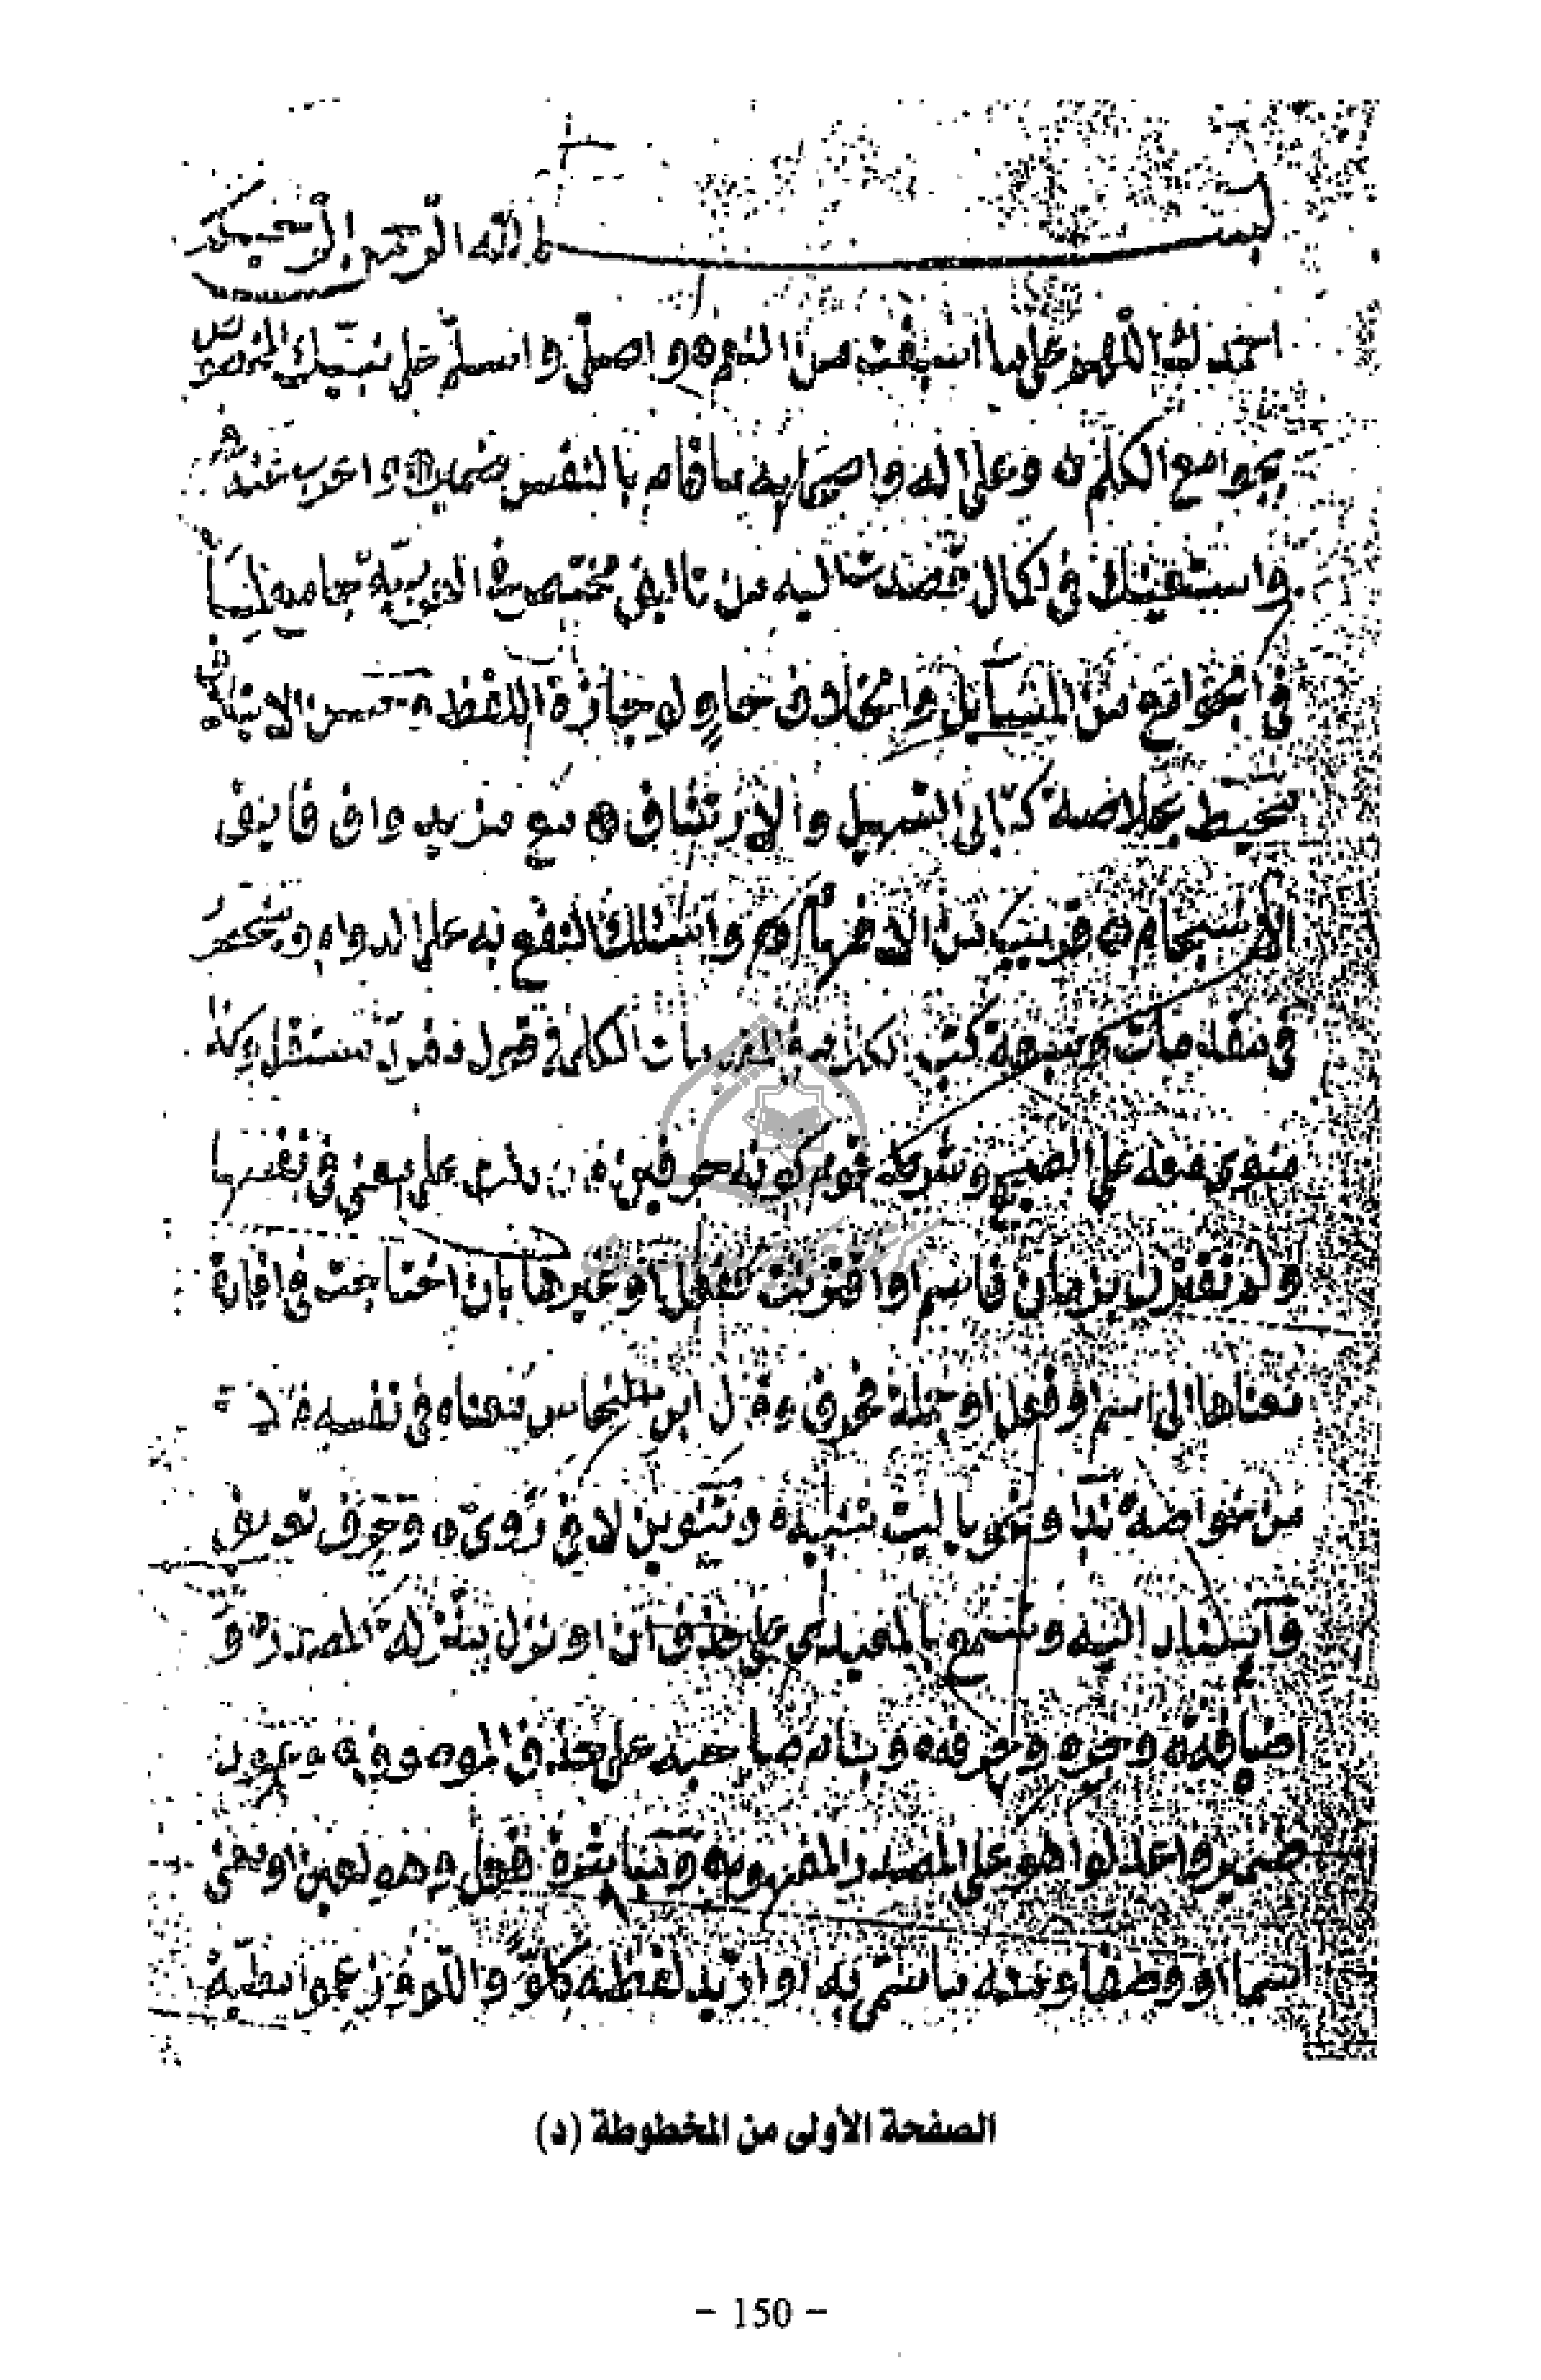 بسم الله الرحمن الرحيم
احمدك اللهم على ما اسبغت من النعم واصلي واسلم على نبيك المخصوص
بجوامع الكلم وعلى اله واصحابه ما قام بالنفس ضمير واعرب عنه
واستعينك في اكمال ما قصدت اليه من تاليف مختصر في العربية جامع لما
في الجوامع من المسائل والخلاف حاو لوجازة اللفظ وحسن الائتلاف
محيط بخلاصة كتابي التسهيل والارتشاف مع مزيد واف فائق
الانسجام قريب من الافهام واسئلك النفع به على الدوام وينحصر
في مقدمات وسبعة كتب الكلام في المقدمات الكلمة قول مفرد مستقل وكذا
منوي معه على الصحيح وشرط قوم كونه حرفين فان دلت على معنى في نفسها
ولم تقترن بزمان فاسم او اقترنت ففعل او غيرها بان احتاجت في افادة
معناها الى اسم او فعل او جملة فحرف وقال ابن النحاس معناه في نفسه فالا
من خواصه ندا ونحو يا ليت تنبيه وتنوين لا في روي وحرف تعريف
واسناد اليه وتسمع بالمعيدي على حذف ان او نزل منزلة المصدر و
اضافة وجره وحرفه وبنام صاحبه على حذف الموصوف وعود
ضمير واعدلوا هو على المصدر المفهوم ومباشرة فعل وهو لعين او معنى
اسما او وصفا ومنه ما سمي به او اريد لفظه كلو والله وزعموا مطية
الصفحة الأولى من المخطوطة (د)
- 150 -